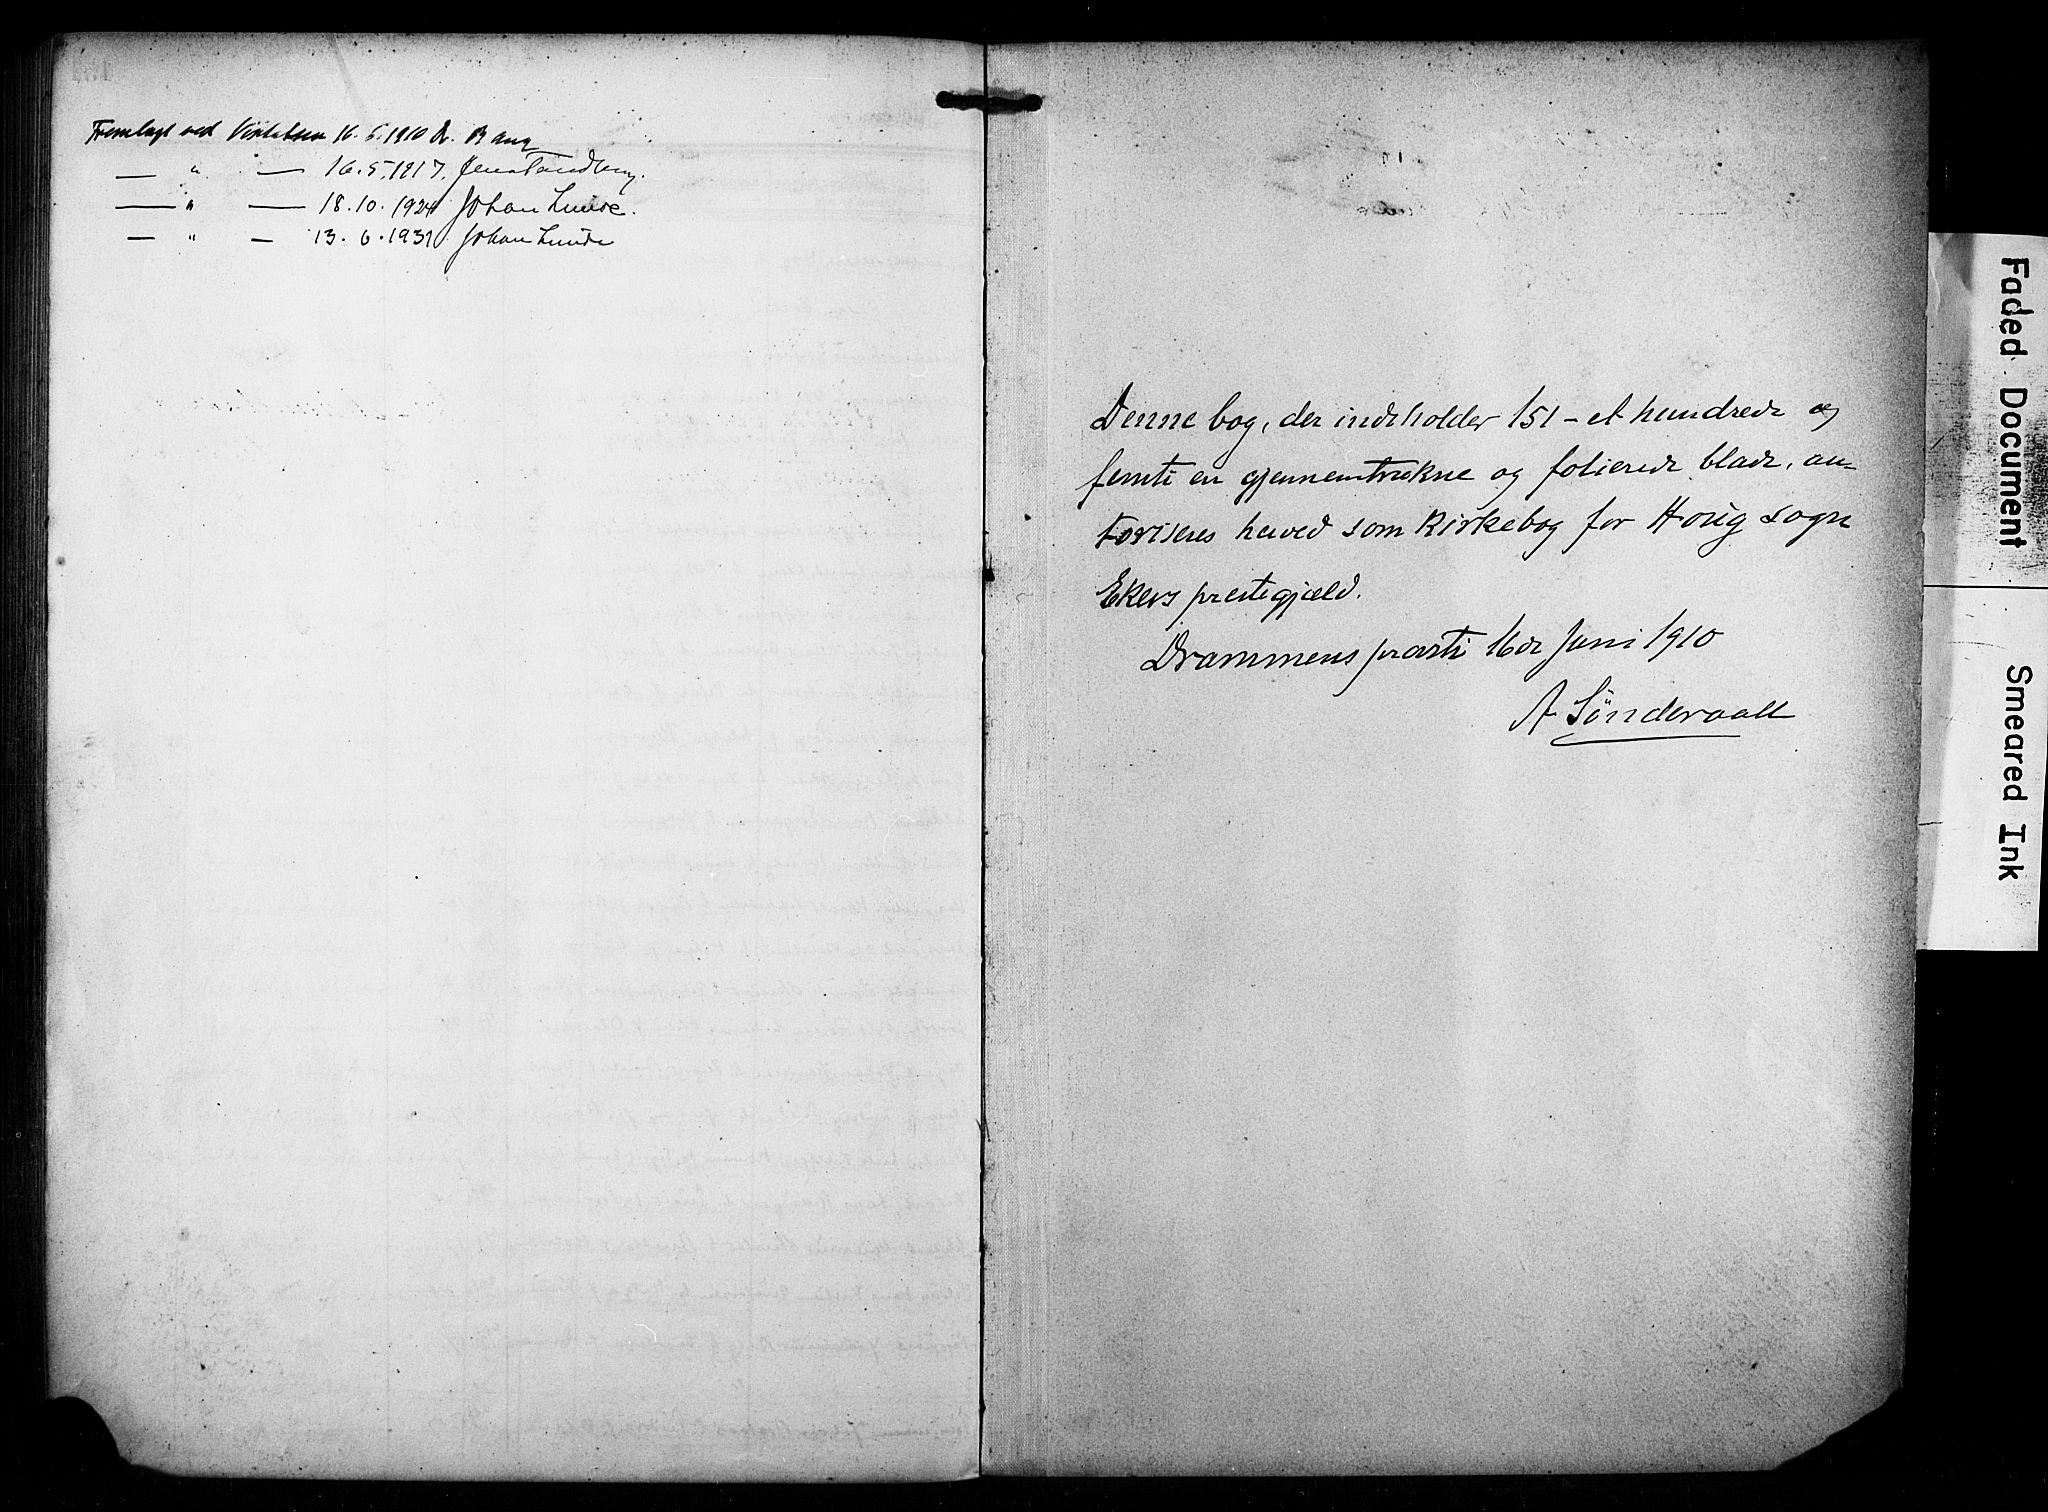 Fremlagt ved Visitatsen 16.6.1910 A. Bang
— " — 16.5.1917. Jens Tandberg.
— " — 18.10.1924 Johan Lunde.
— " — 13.6.1931 Johan Lunde
Denne bog, der indeholder 151 – et hundrede og
femti en gjennemtrukne og folierede blade, au-
toriseres herved som Kirkebog for Houg sogn
Ekers prestegjæld.
Drammens provsti 16de Juni 1910
A Sønderaall
Faded Document
Smeared Ink